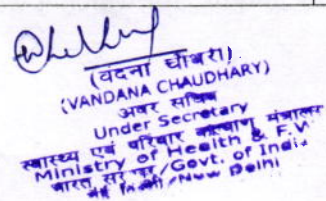 (वंदना चौधरी)
(VANDANA CHAUDHARY)
अवर सचिव
Under Secretary
स्वास्थ्य एवं परिवार कल्याण मंत्रालय
Ministry of Health & F.W
भारत सरकार/Govt. of India
नई दिल्ली/New Delhi